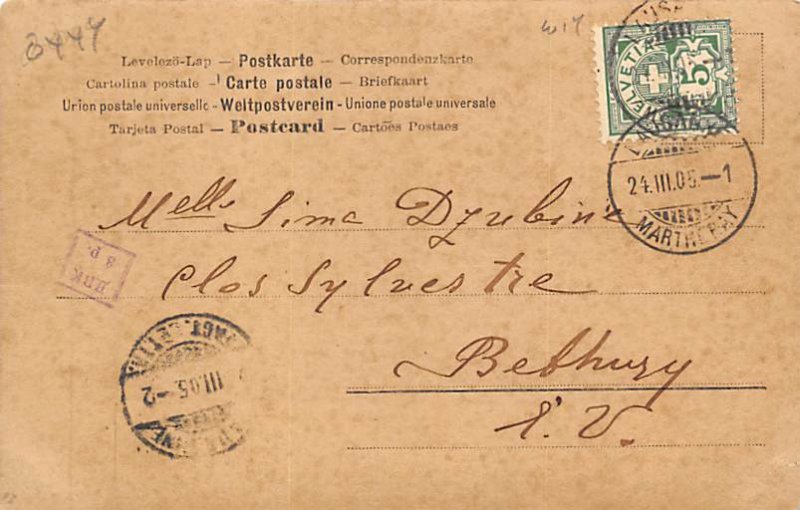 3447
W17
Levelező-Lap — Postkarte — Correspondenzkarte
Cartolina postale — Carte postale — Briefkaart
Union postale universelle - Weltpostverein - Unione postale universale
Tarjeta Postal — Postcard — Cartões Postaes
HELVETIA
5
LAUSANNE
24.III.05.—1
MARTHERAY
Melle Sima Dzubine
Clos Sylvestre
Bethusy
E. V.
III.05.—2